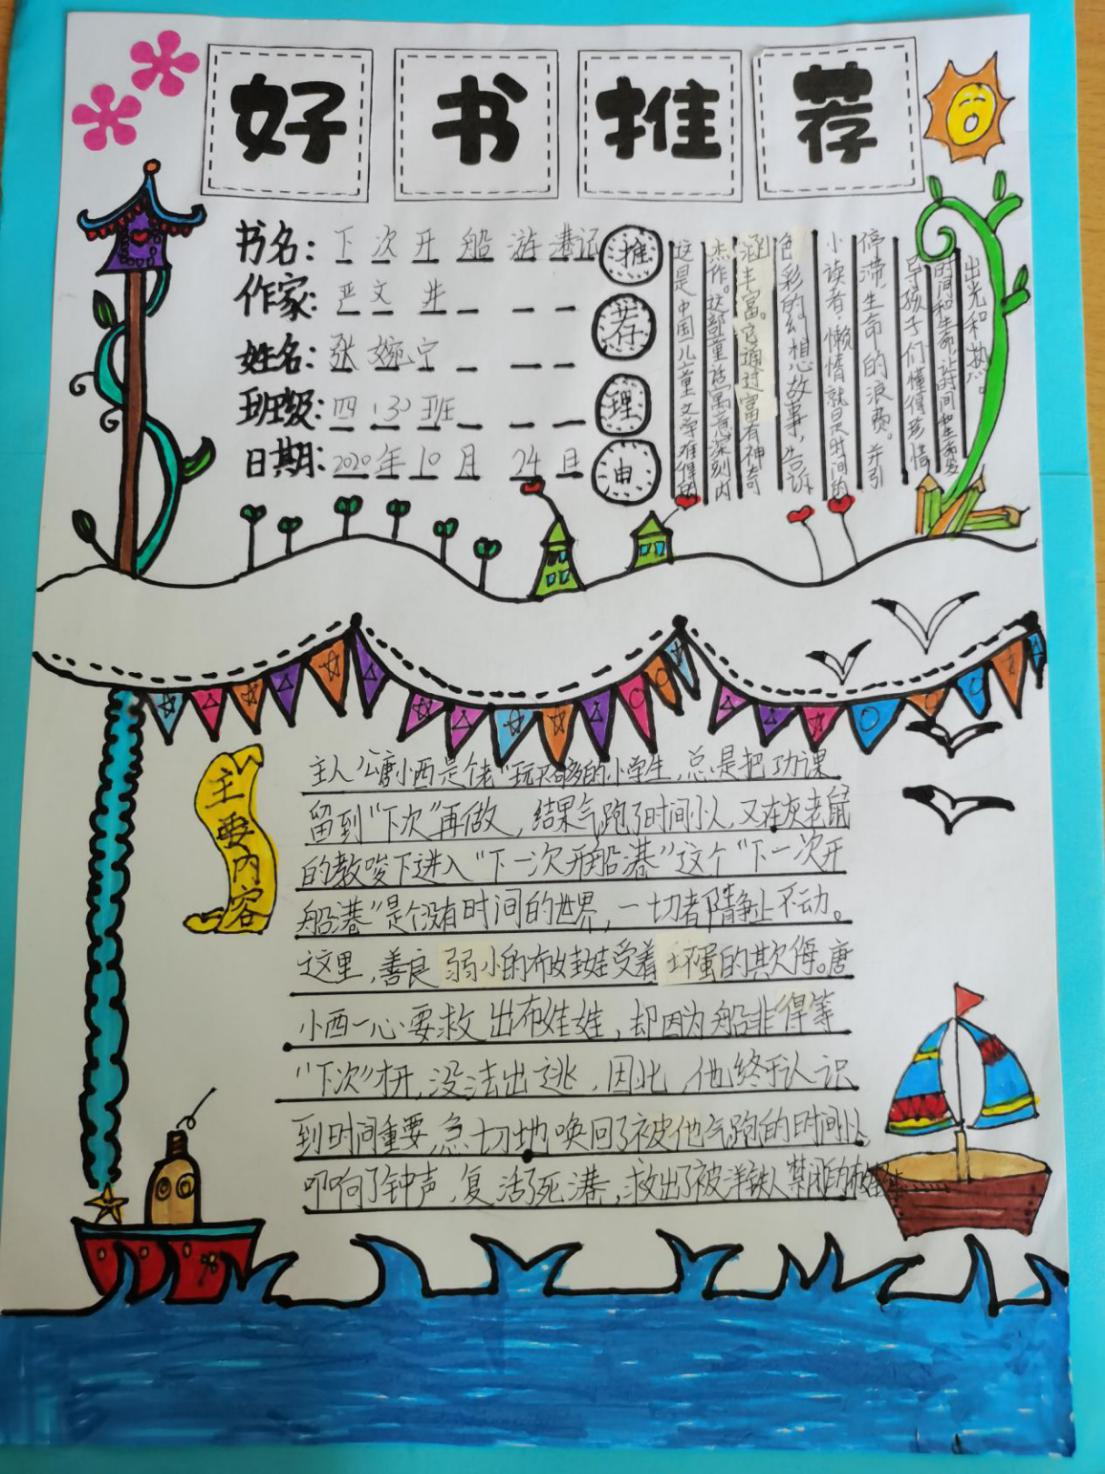 好书推荐
书名：下次开船游港记
作家：严文井
姓名：张婉宁
班级：四（3）班
日期：2020年10月24日
推荐理由
这是中国儿童文学难得的
杰作。这部童话寓意深刻内
涵丰富。它通过富有神奇
色彩的幻想故事，告诉
小读者：懒惰就是时间的
停滞，生命的浪费。并引
导孩子们懂得珍惜
时间和生命，让时间和生命发
出光和热。
主要内容
主人公唐小西是个老"玩不够的小学生，总是把功课
留到"下次"再做，结果气跑了时间小人，又在灰老鼠
的教唆下进入"下一次开船港"这个"下一次开
船港"是个没有时间的世界，一切都静止不动。
这里，善良弱小的布娃娃受着坏蛋的欺侮。唐
小西一心要救出布娃娃，却因为船非得等
"下次"才开，没法出逃，因此，他终于认识
到时间重要，急切地唤回了被他气跑的时间小人
叩响了钟声，复活了死港，救出了被洋铁人禁闭的布娃娃